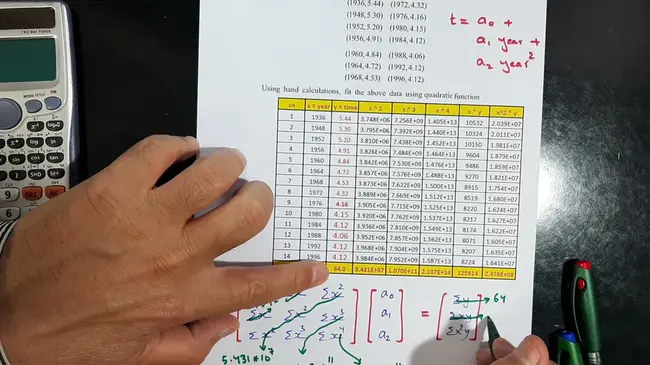 (1936, 5.44) (1972, 4.32)
(1948, 5.30) (1976, 4.16)
(1952, 5.20) (1980, 4.15)
(1956, 4.91) (1984, 4.12)
(1960, 4.84) (1988, 4.06)
(1964, 4.72) (1992, 4.12)
(1968, 4.53) (1996, 4.12)
t = a₀ +
a₁ year +
a₂ year²
Using hand calculations, fit the above data using quadratic function
sn x = year y = time x^2 x^3 x^4 x * y x^2 * y
1 1936 5.44 3.748E+06 7.256E+09 1.405E+13 10532 2.039E+07
2 1948 5.30 3.795E+06 7.392E+09 1.440E+13 10324 2.011E+07
3 1952 5.20 3.810E+06 7.438E+09 1.452E+13 10150 1.981E+07
4 1956 4.91 3.826E+06 7.484E+09 1.464E+13 9604 1.879E+07
5 1960 4.84 3.842E+06 7.530E+09 1.476E+13 9486 1.859E+07
6 1964 4.72 3.857E+06 7.576E+09 1.488E+13 9270 1.821E+07
7 1968 4.53 3.873E+06 7.622E+09 1.500E+13 8915 1.754E+07
8 1972 4.32 3.889E+06 7.669E+09 1.512E+13 8519 1.680E+07
9 1976 4.16 3.905E+06 7.715E+09 1.525E+13 8220 1.624E+07
10 1980 4.15 3.920E+06 7.762E+09 1.537E+13 8217 1.627E+07
11 1984 4.12 3.936E+06 7.810E+09 1.549E+13 8174 1.622E+07
12 1988 4.06 3.952E+06 7.857E+09 1.562E+13 8071 1.605E+07
13 1992 4.12 3.968E+06 7.904E+09 1.575E+13 8207 1.635E+07
14 1996 4.12 3.984E+06 7.952E+09 1.587E+13 8224 1.641E+07
64.0 5.431E+07 1.070E+11 2.107E+14 125914 2.478E+08
Σx² a₀ Σy 64
Σx² Σx³ a₁ = Σxy
Σx² Σx³ Σx⁴ a₂ Σx²y
5.431*10⁷